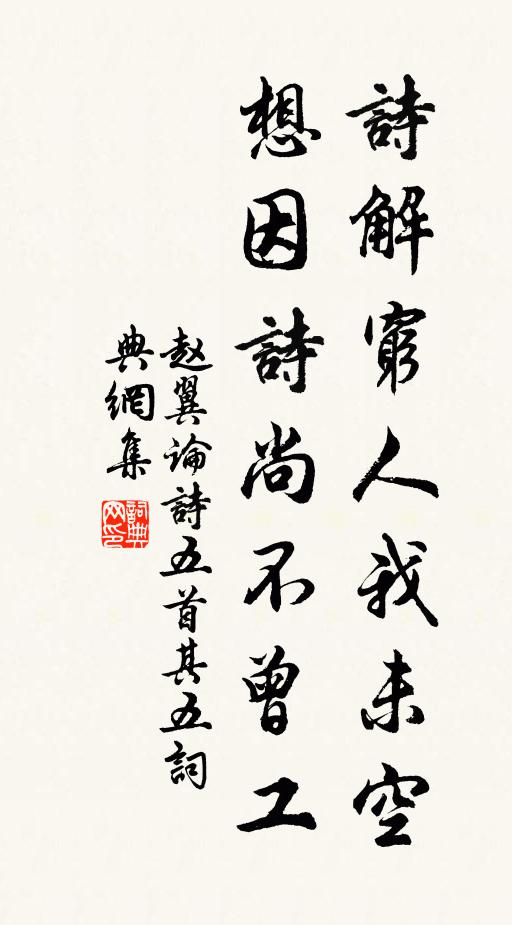 詩解窮人我未空
想因詩尚不曾工
赵翼論詩五首其五詞
典網集
詞典
网印